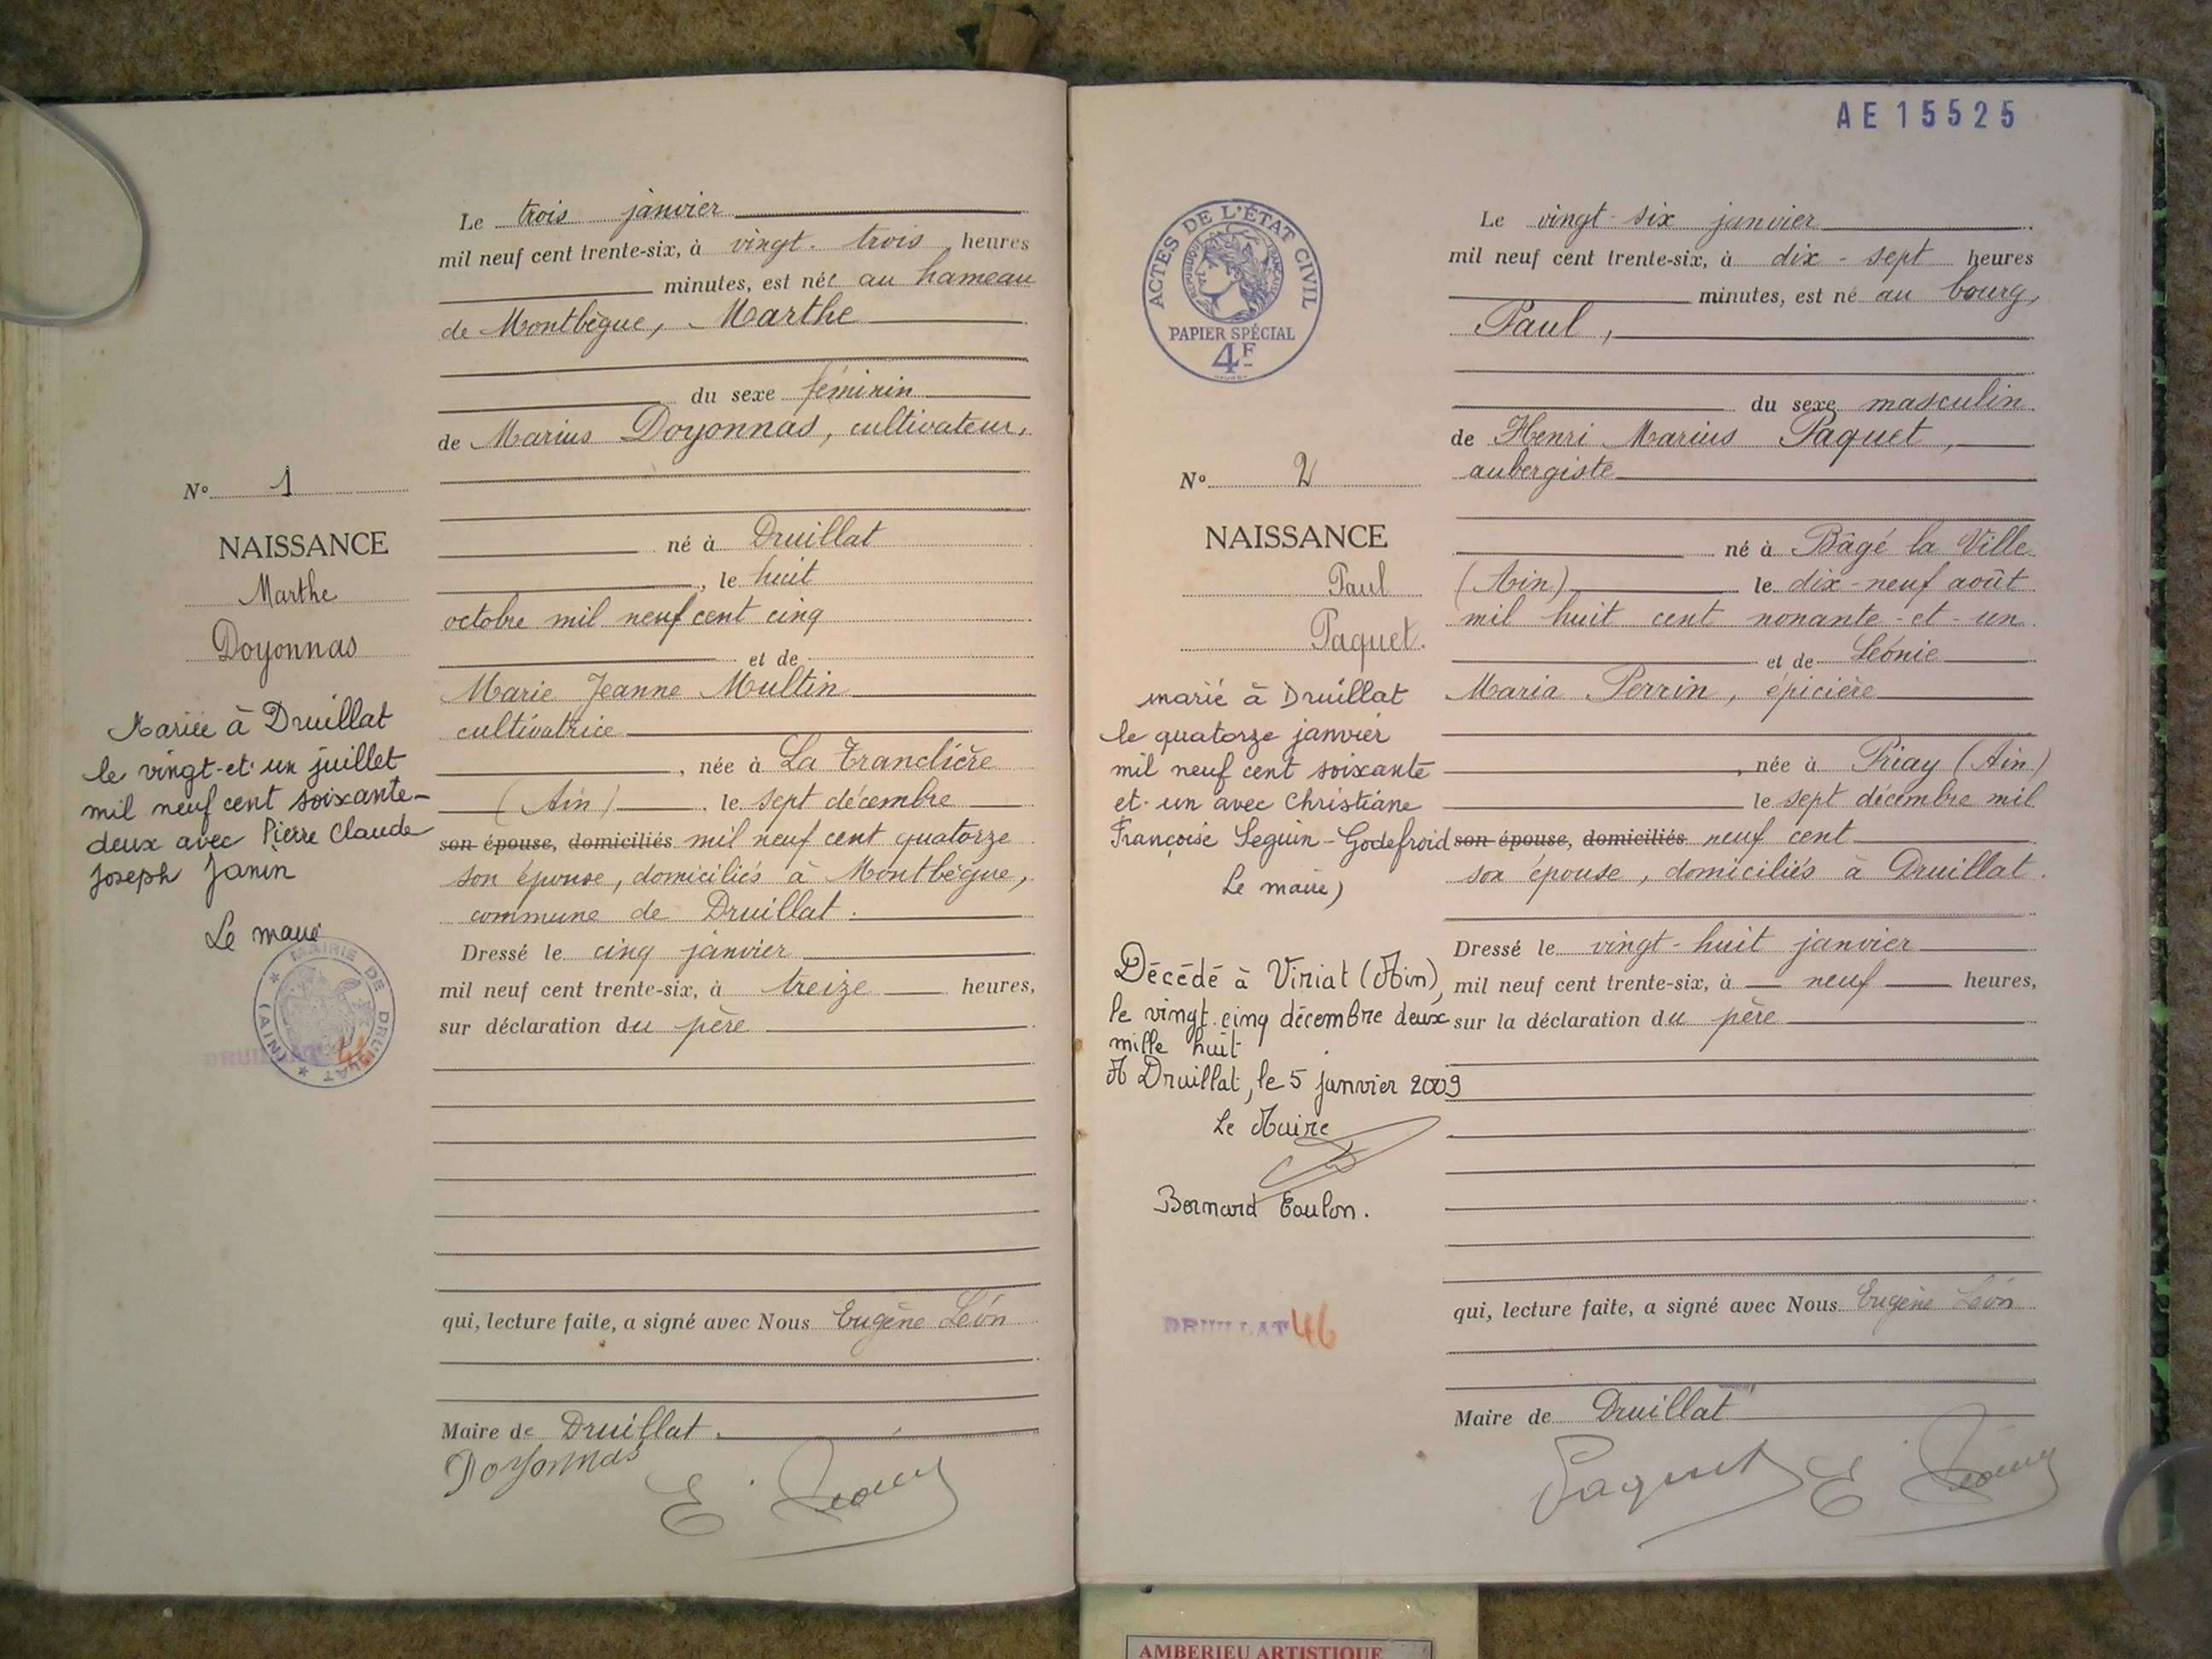 Le trois janvier
mil neuf cent trente-six, à vingt-trois heures
minutes, est née au hameau
de Montbègue, Marthe
du sexe féminin
de Marius Doyonnas, cultivateur,
né à Druillat
, le huit
octobre mil neuf cent cinq
et de
Marie Jeanne Multin
cultivatrice
, née à La Tranclière
(Ain) le sept décembre
son épouse, domiciliés mil neuf cent quatorze
son épouse, domiciliés à Montbègue,
commune de Druillat.
Dressé le cinq janvier
mil neuf cent trente-six, à treize heures,
sur déclaration du père
qui, lecture faite, a signé avec Nous Eugène Léón
Maire de Druillat.
Doyonnas
N° 1
NAISSANCE
Marthe
Doyonnas
Mariée à Druillat
le vingt-et-un juillet
mil neuf cent soixante-
deux avec Pierre Claude
Joseph Janin
Le maire
MAIRIE DE DRUILLAT
(AIN)
DRUILLAT 46
AE 15525
ACTES DE L'ÉTAT CIVIL
RÉPUBLIQUE FRANÇAISE
PAPIER SPÉCIAL
4F
Le vingt-six janvier
mil neuf cent trente-six, à dix-sept heures
minutes, est né au bourg,
Paul,
du sexe masculin
de Henri Marius Paquet,
aubergiste
né à Bâgé la Ville
(Ain) le dix-neuf août
mil huit cent nonante-et-un
et de Léonie
Maria Perrin, épicière
, née à Priay (Ain)
le sept décembre mil
son épouse, domiciliés neuf cent
son épouse, domiciliés à Druillat.
Dressé le vingt-huit janvier
mil neuf cent trente-six, à neuf heures,
sur la déclaration du père
qui, lecture faite, a signé avec Nous Eugène Léon
Maire de Druillat
Paquet
N° 2
NAISSANCE
Paul
Paquet.
marié à Druillat
le quatorze janvier
mil neuf cent soixante
et un avec Christiane
Françoise Seguin-Godefroid
Le maire)
Décédé à Viriat (Ain),
le vingt-cinq décembre deux
mille huit
A Druillat, le 5 janvier 2009
Le Maire
Bernard Toulon.
DRUILLAT 46
AMBERIEU ARTISTIQUE